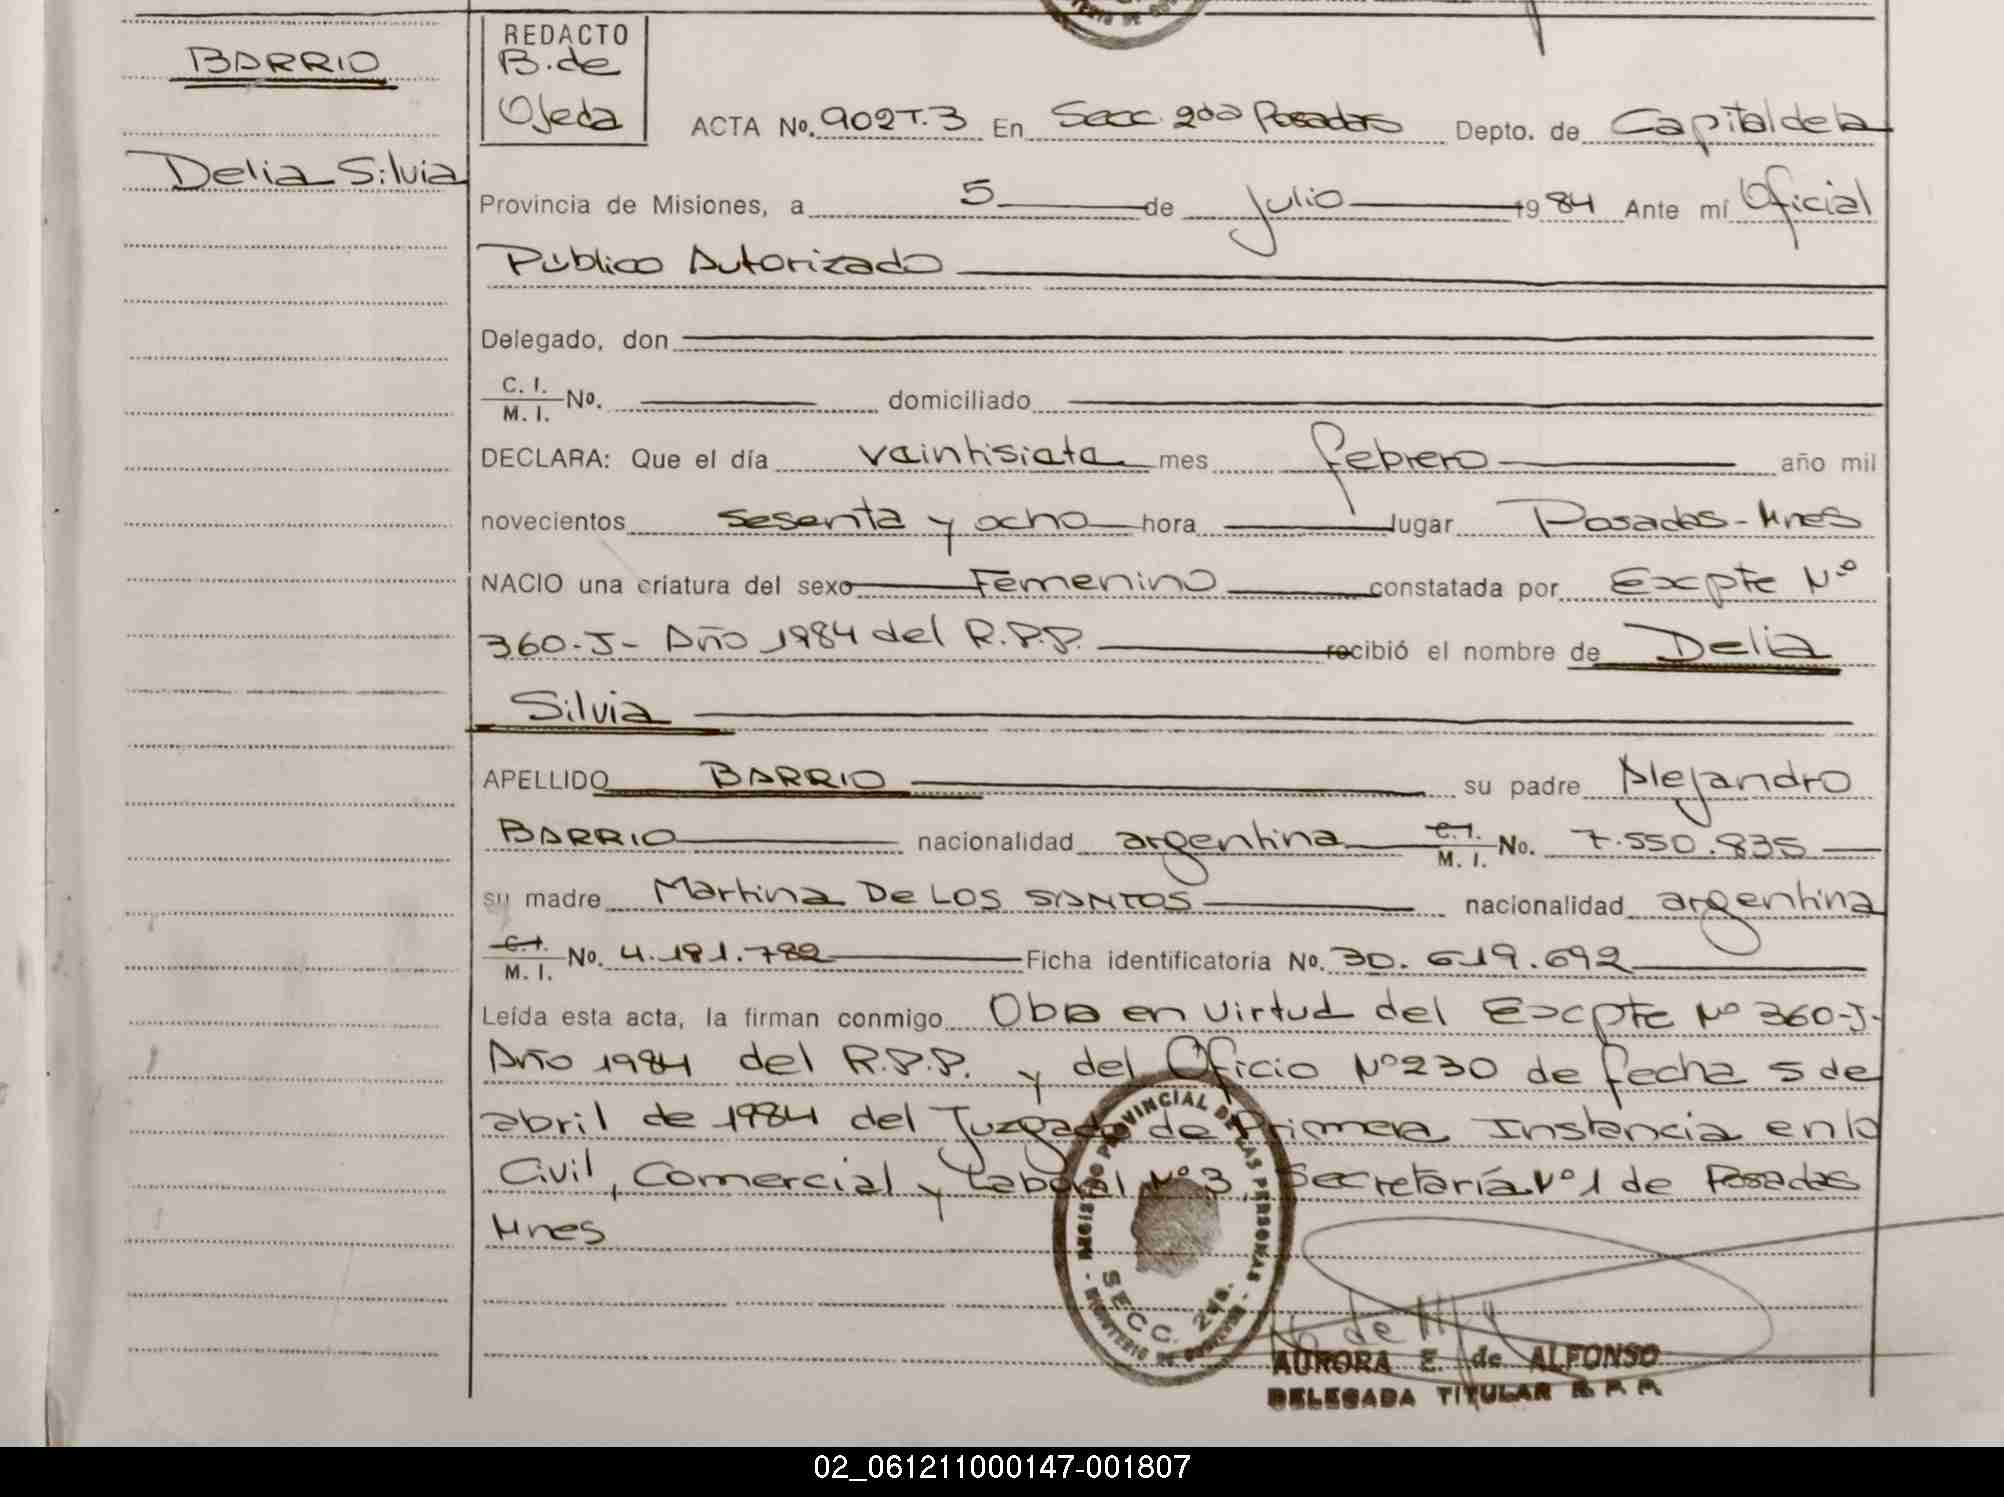 BARRIO
Delia Silvia
REDACTO
B. de
Ojeda
ACTA No. 902 T. 3 En Secc. 2da Posadas Depto. de Capital de la
Provincia de Misiones, a 5 de Julio 1984 Ante mí Oficial
Público Autorizado
Delegado, don
C. I.
M. I. No. domiciliado
DECLARA: Que el día veintisiete mes febrero año mil
novecientos sesenta y ocho hora lugar Posadas - Mnes
NACIO una criatura del sexo Femenino constatada por Excpte Nº
360-J- Año 1984 del R.P.P. recibió el nombre de Delia
Silvia
APELLIDO BARRIO su padre Alejandro
BARRIO nacionalidad argentina C. I. M. I. No. 7.550.835
su madre Martina De LOS SANTOS nacionalidad argentina
C. I. M. I. No. 4.181.782 Ficha identificatoria No. 30.619.692
Leída esta acta, la firman conmigo Obra en virtud del Excpte Nº 360-J-
Año 1984 del R.P.P. y del Oficio Nº 230 de fecha 5 de
abril de 1984 del Juzgado de Primera Instancia en lo
Civil, Comercial y Laboral Nº 3, Secretaría Nº 1 de Posadas
Mnes
REGISTRO PROVINCIAL DE LAS PERSONAS
SECC. 2da.
MINISTERIO DE GOBIERNO
AURORA E. de ALFONSO
DELEGADA TITULAR R.P.P.
02_061211000147-001807